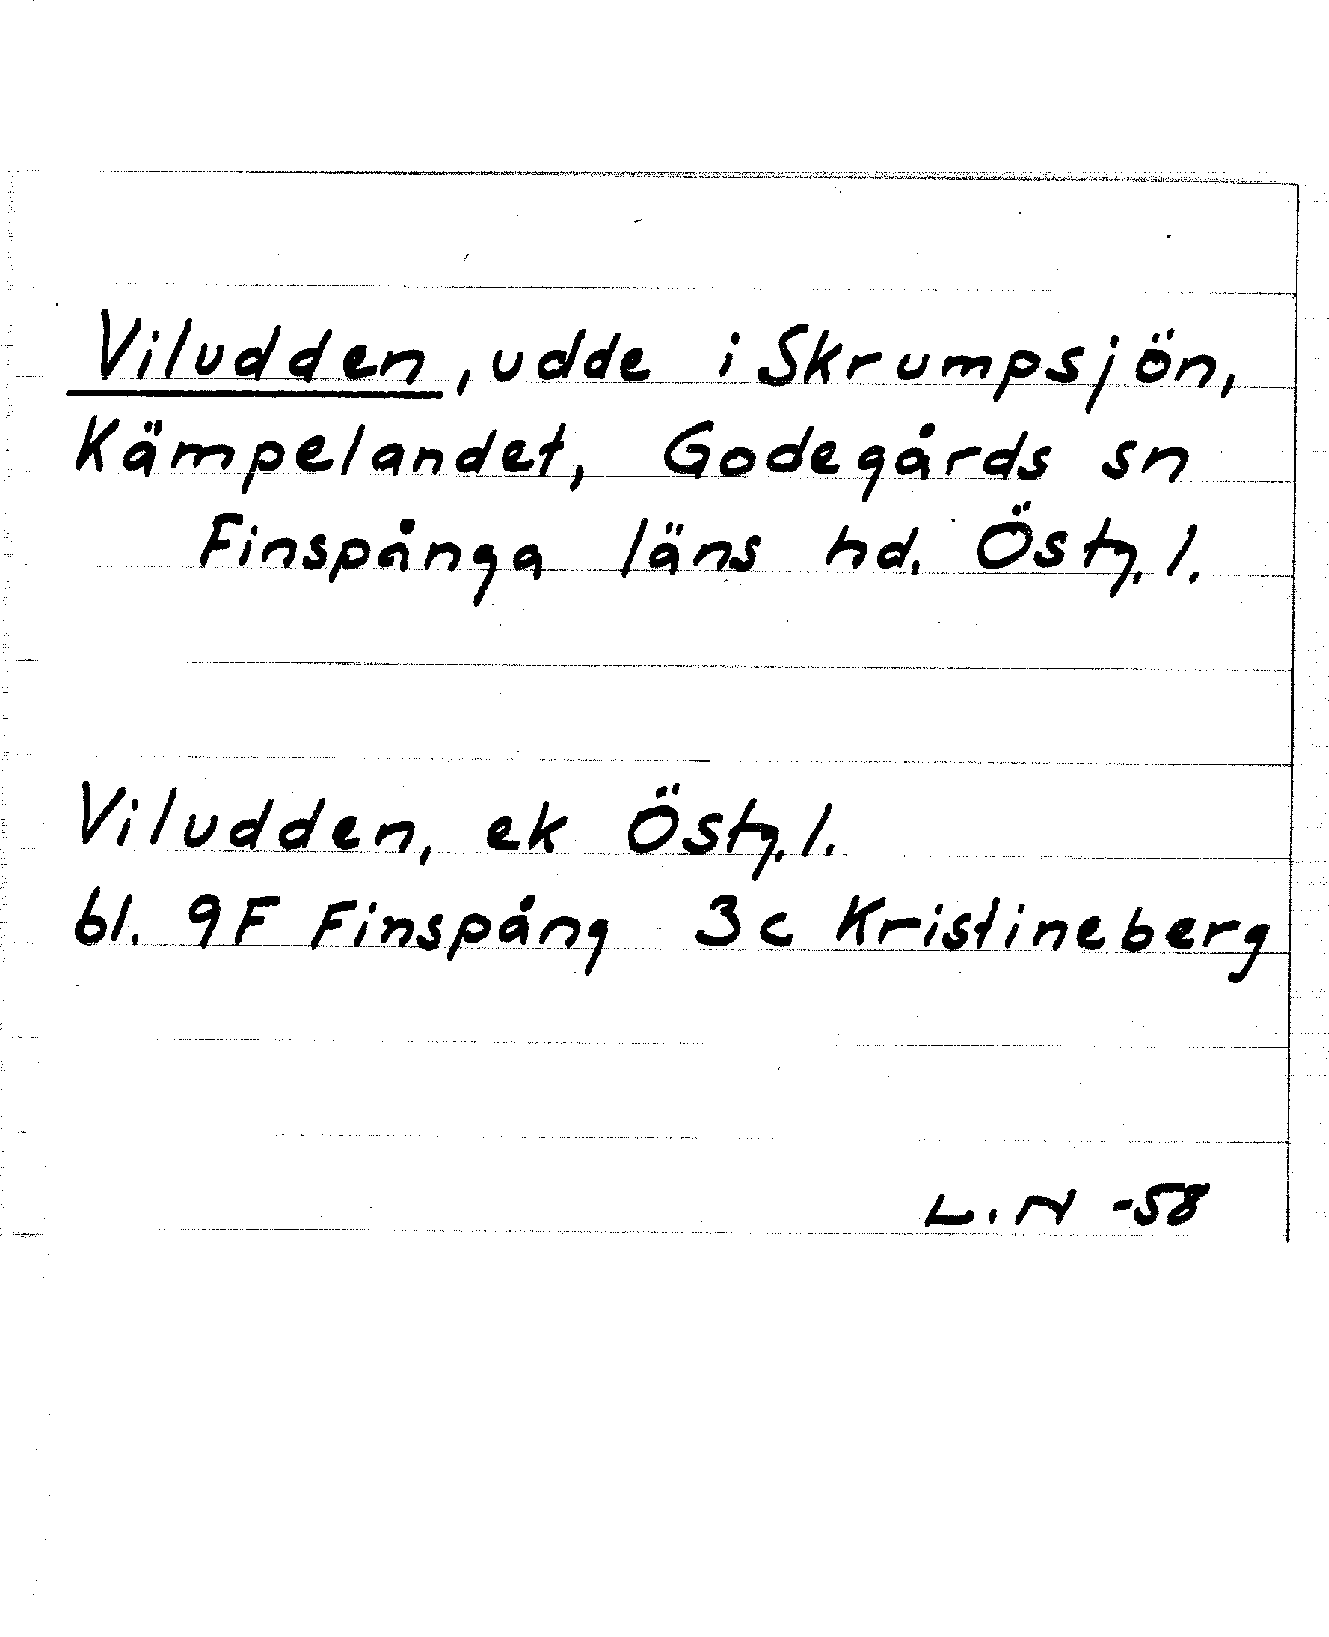 Viludden, udde i Skrumpsjön,
Kämpelandet, Godegårds sn
Finspånga läns hd. Östg. l.
Viludden, ek Östg. l.
bl. 9F Finspång 3c Kristineberg
L.N -58